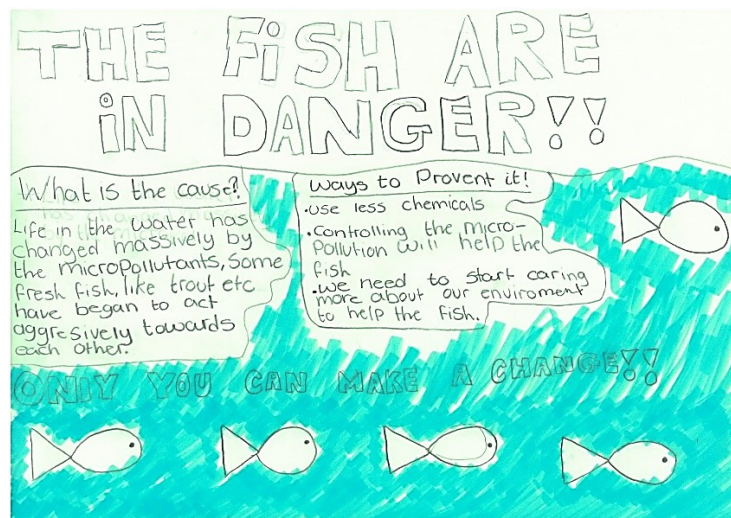 THE FiSH ARE
iN DANGER!!
What is the cause?
Life in the water has
changed massively by
the micropollutants, Some
fresh fish, like trout etc
have began to act
aggresively towards
each other.
Ways to Provent it!
•use less chemicals
•Controlling the micro-
Pollution will help the
fish
•we need to start caring
more about our enviroment
to help the fish.
ONlY YOU CAN MAKE A CHANGE!!